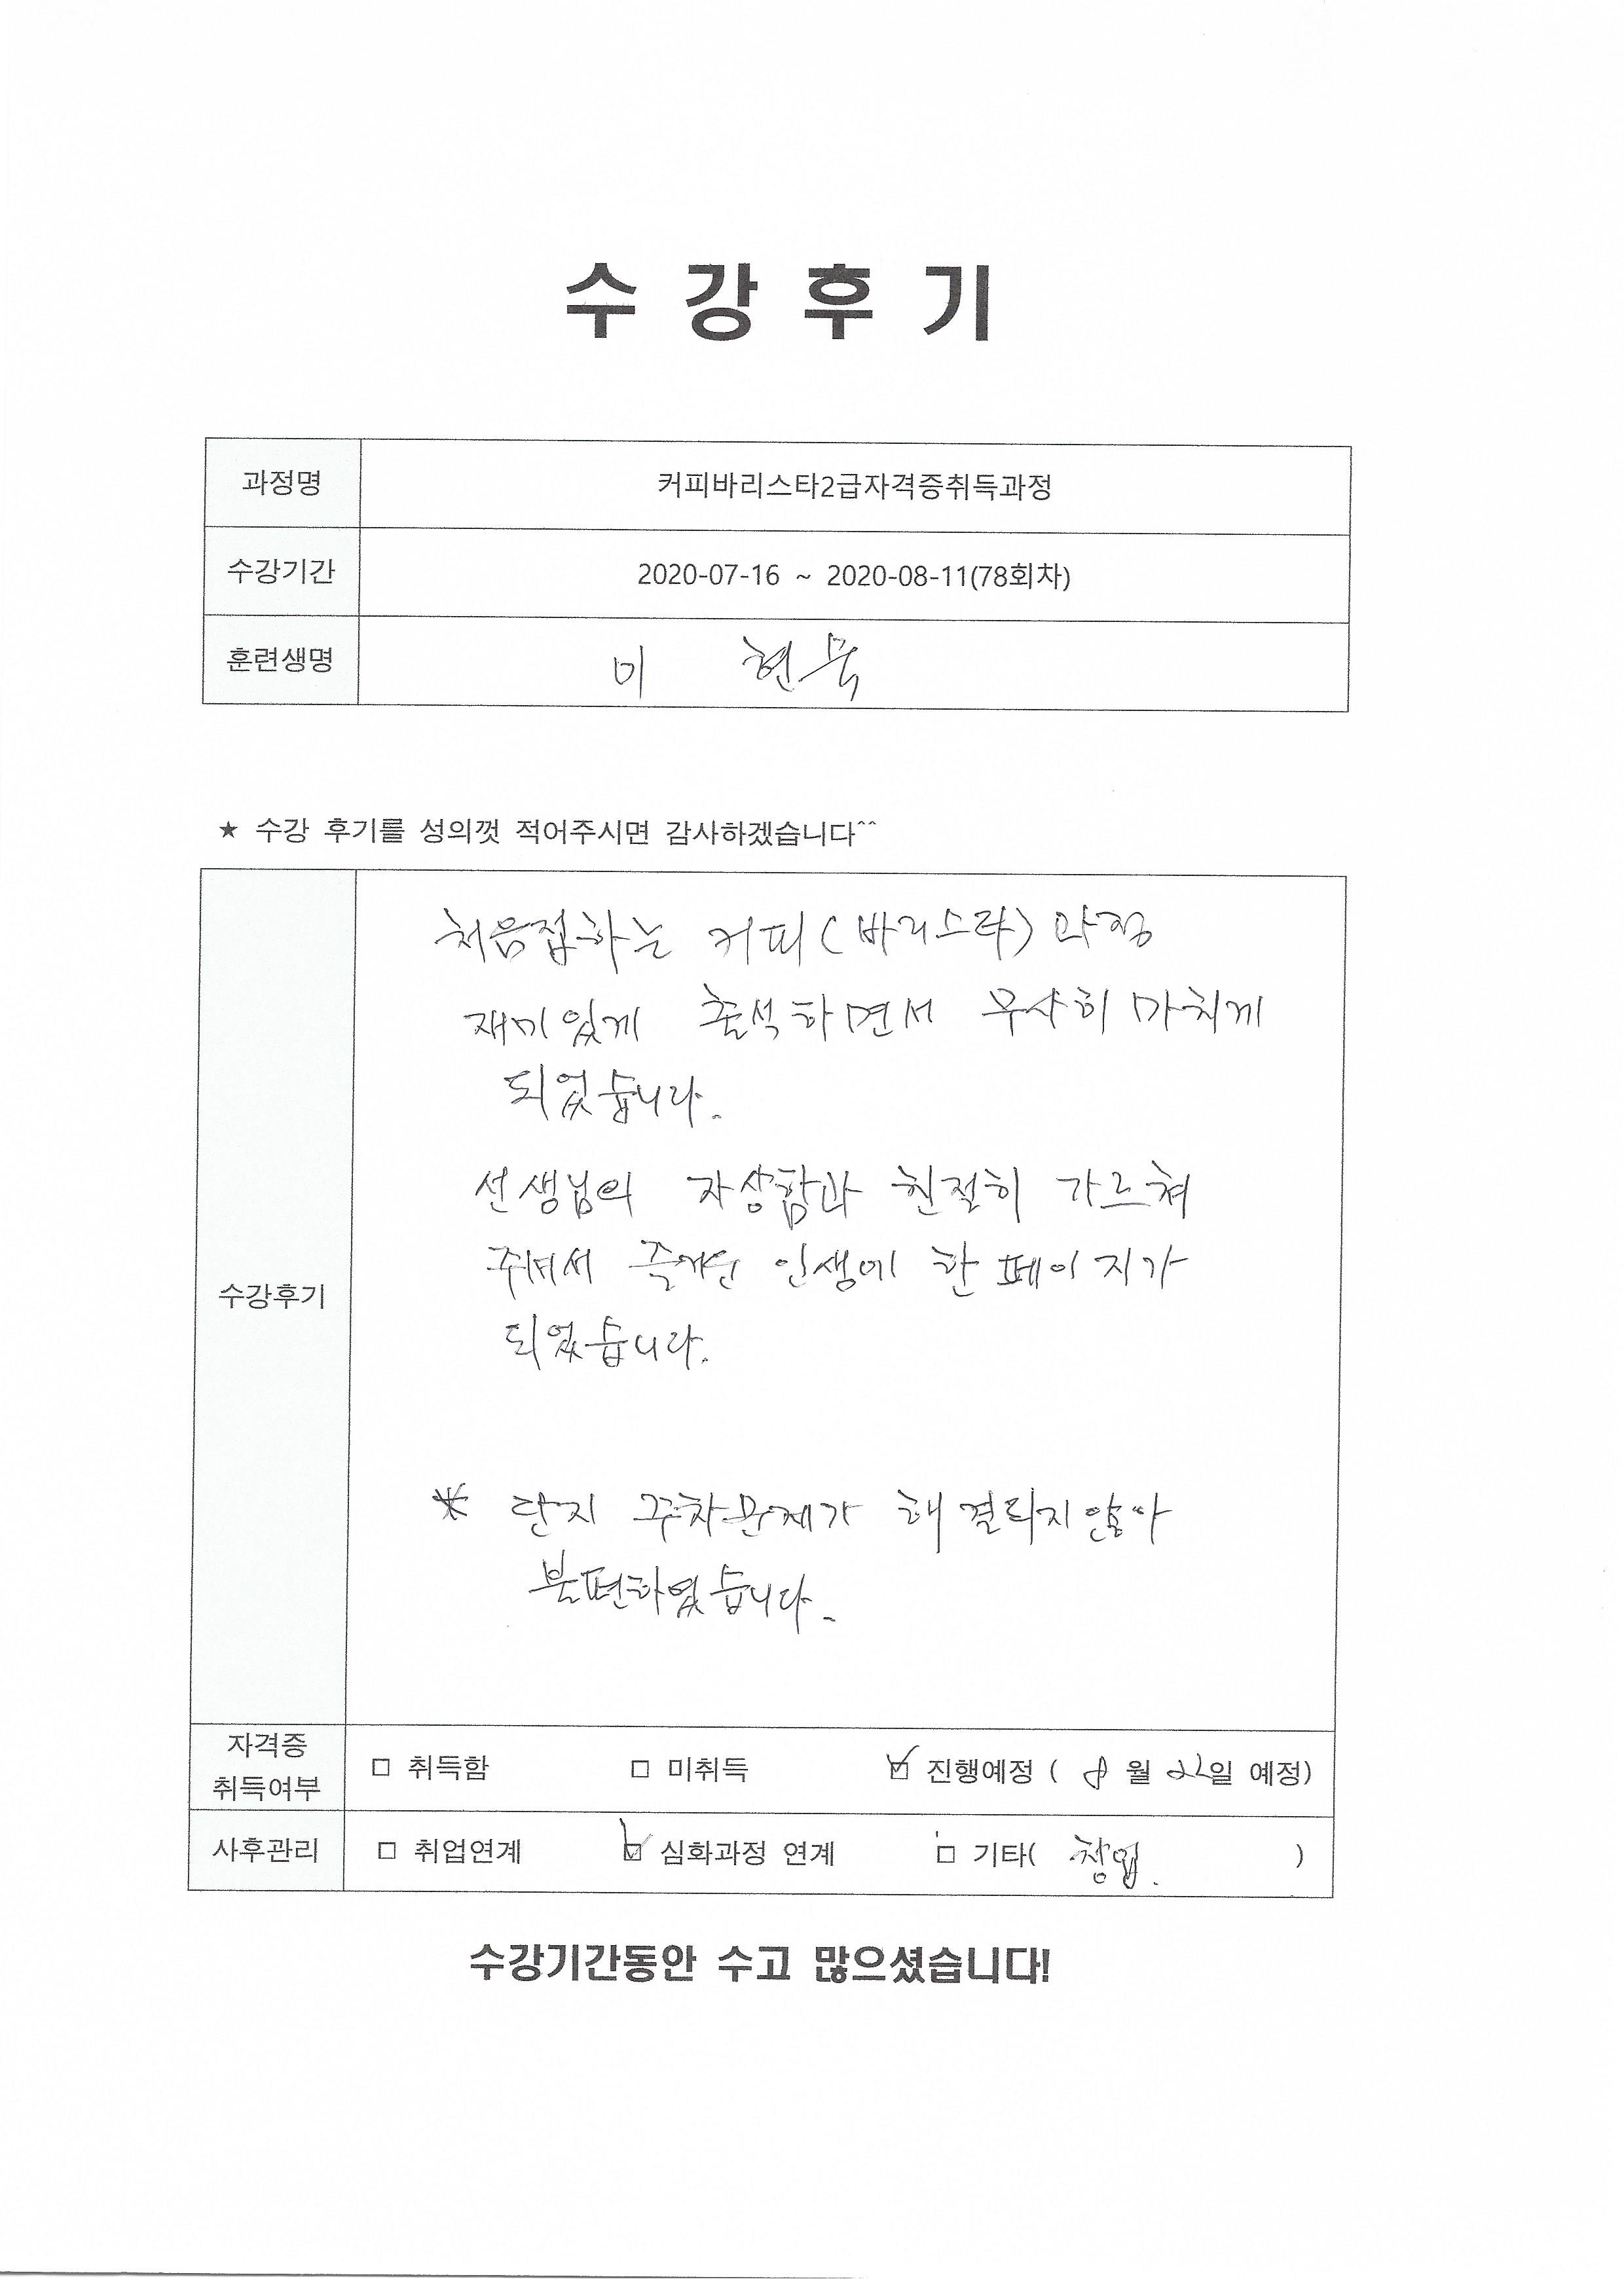 수 강 후 기
과정명 커피바리스타2급자격증취득과정
수강기간 2020-07-16 ~ 2020-08-11(78회차)
훈련생명 이 현묵
★ 수강 후기를 성의껏 적어주시면 감사하겠습니다^^
수강후기
처음접하는 커피(바리스타) 과정
재미있게 출석하면서 무사히 마치게
되었습니다.
선생님의 자상함과 친절히 가르쳐
주셔서 즐거운 인생에 한 페이지가
되었습니다.
* 단지 주차문제가 해결되지않아
불편하였습니다.
자격증 취득여부 □ 취득함 □ 미취득 ☑ 진행예정 ( 8 월 22일 예정)
사후관리 □ 취업연계 ☑ 심화과정 연계 □ 기타( 창업. )
수강기간동안 수고 많으셨습니다!